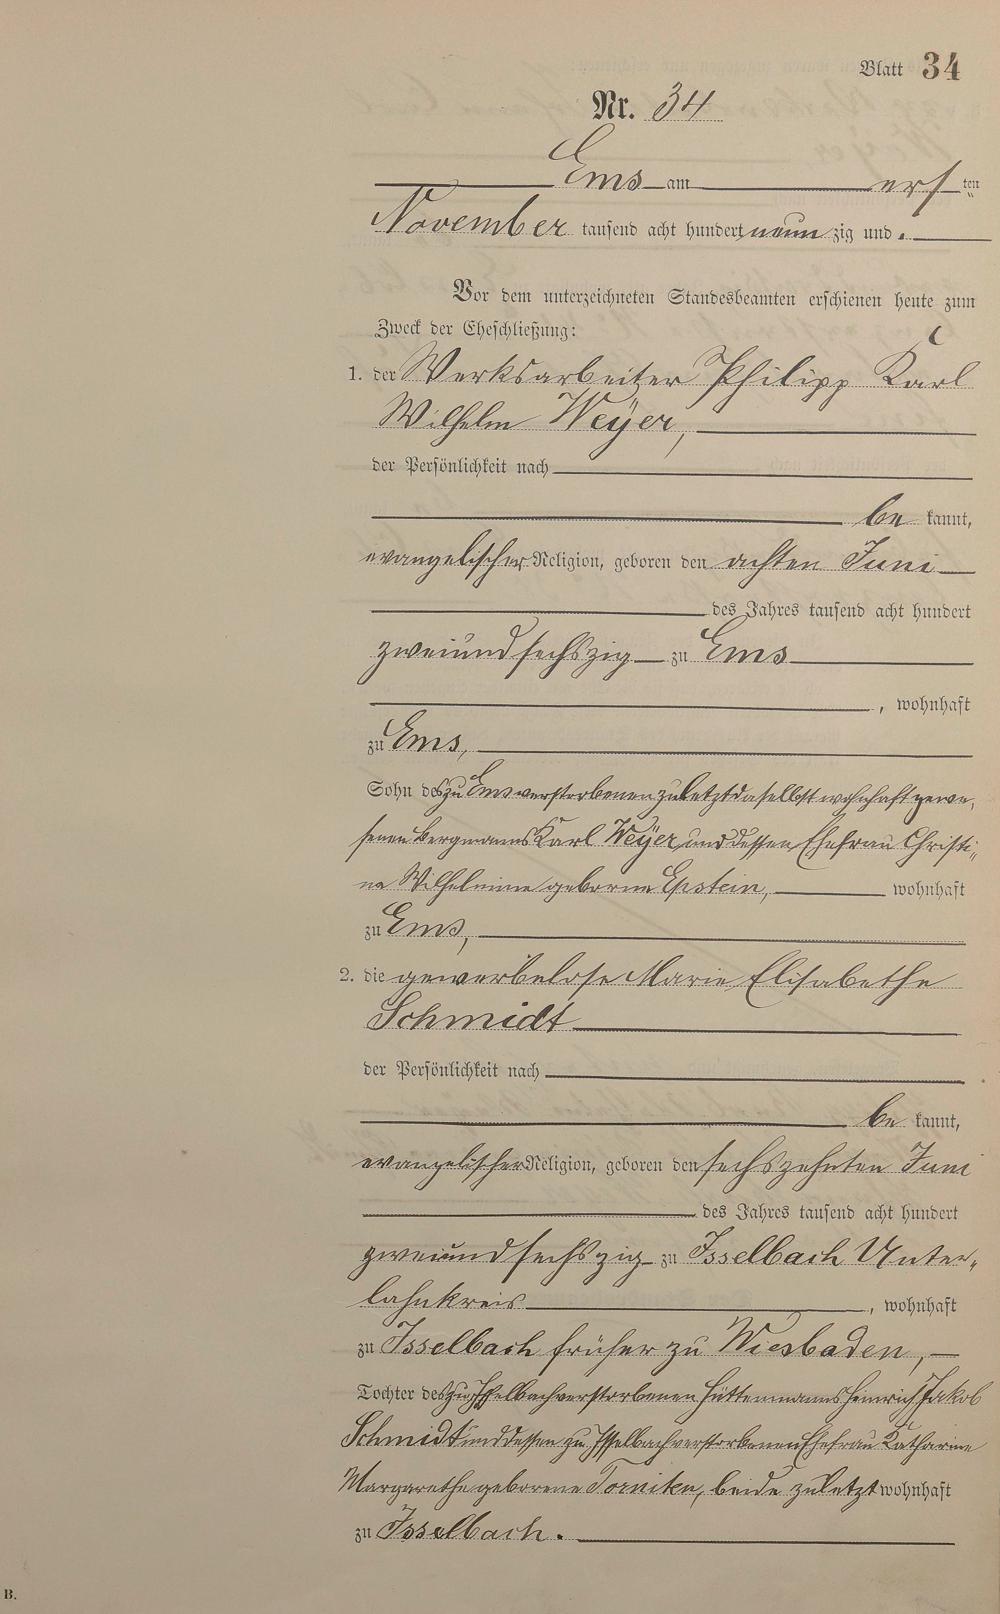 Blatt 34
Nr. 34
Ems am ersten
November tausend acht hundert neunzig und .
Vor dem unterzeichneten Standesbeamten erschienen heute zum
Zweck der Eheschließung:
1. der Werksarbeiter Philipp Karl
Wilhelm Weÿer,
der Persönlichkeit nach
bekannt,
evangelischer Religion, geboren den achten Juni
des Jahres tausend acht hundert
zweiundsechszig zu Ems
, wohnhaft
zu Ems,
Sohn des zu Ems verstorbenen zuletzt daselbst wohnhaft gewe-
senen Bergmanns Karl Weÿer und dessen Ehefrau Christi-
ne Wilhelmine geborene Epstein, wohnhaft
zu Ems,
2. die gewerbelose Marie Elisabethe
Schmidt
der Persönlichkeit nach
bekannt,
evangelischer Religion, geboren den sechszehnten Juni
des Jahres tausend acht hundert
zweiundsechszig zu Isselbach Unter-
lahnkreis , wohnhaft
zu Isselbach früher zu Wiesbaden,
Tochter des zu Isselbach verstorbenen Hüttenmanns Heinrich Jakob
Schmidt und dessen zu Isselbach verstorbenen Ehefrau Katharine
Margarethe geborene beide zuletzt wohnhaft
zu Isselbach.
B.